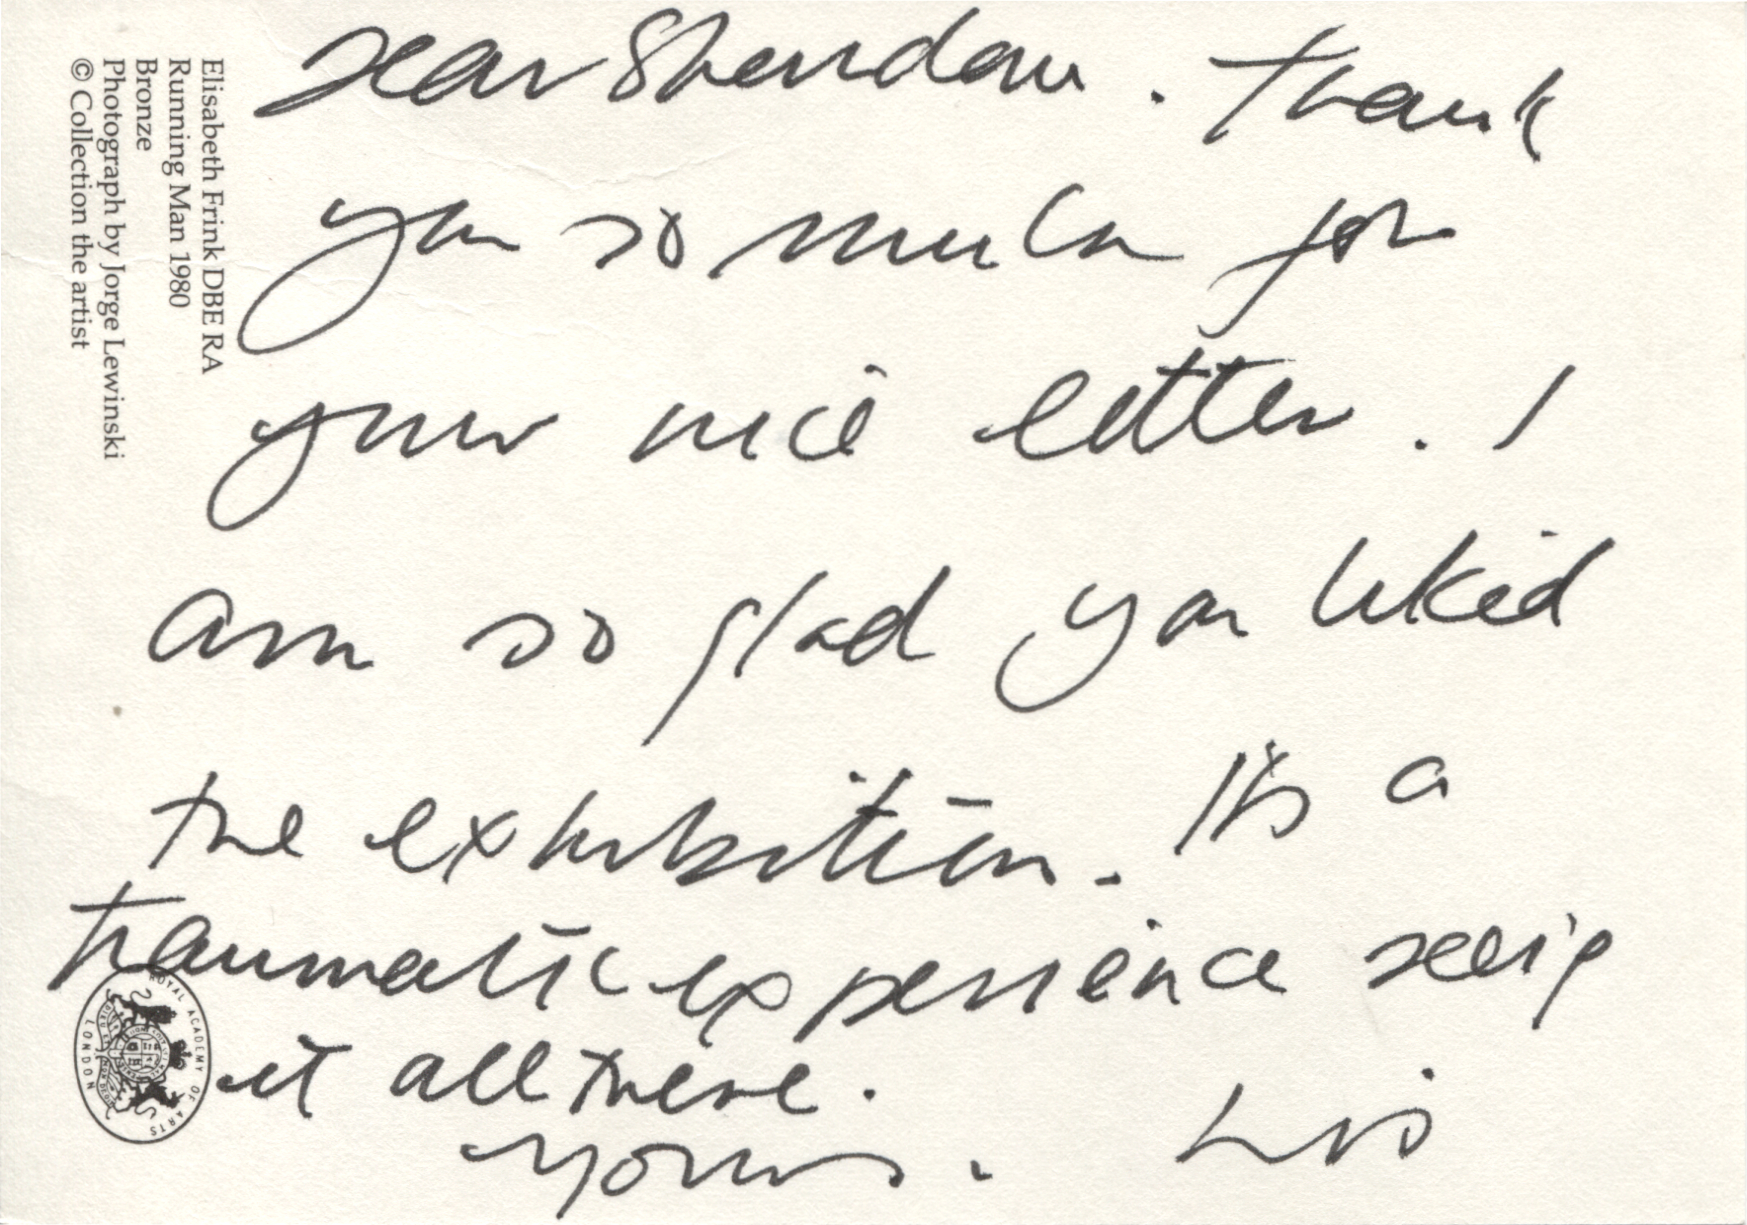 Dear Sheridan. Thank
you so much for
your nice letter. I
am so glad you liked
the exhibition. It's a
traumatic experience seeing
it all there.
Yours. Lis
Elisabeth Frink DBE RA
Running Man 1980
Bronze
Photograph by Jorge Lewinski
© Collection the artist
ROYAL ACADEMY OF ARTS
LONDON